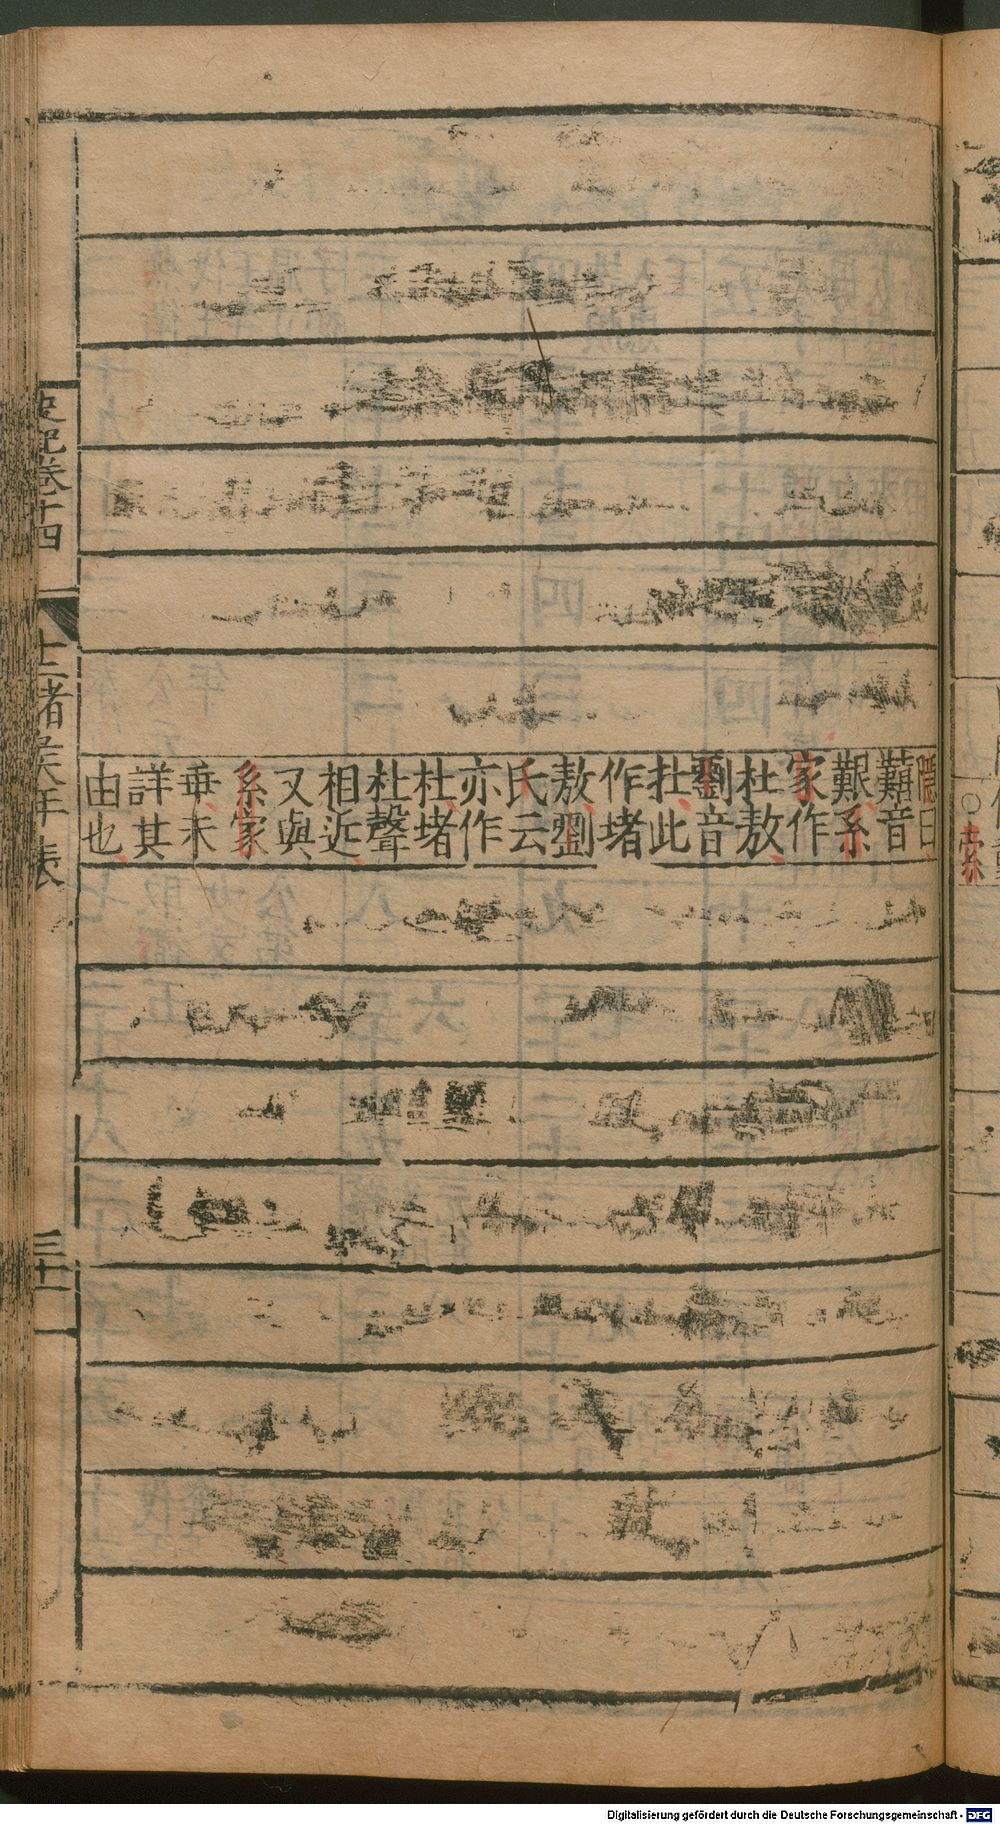 隱曰
囏音
艱系
家作
杜敖
劉音
杜此
作堵
敖劉
氏云
亦作
杜堵
杜聲
相近
又與
系家
垂未
詳其
由也
史記卷十四
十二諸侯年表
三十一
索
Digitalisierung gefördert durch die Deutsche Forschungsgemeinschaft - DFG